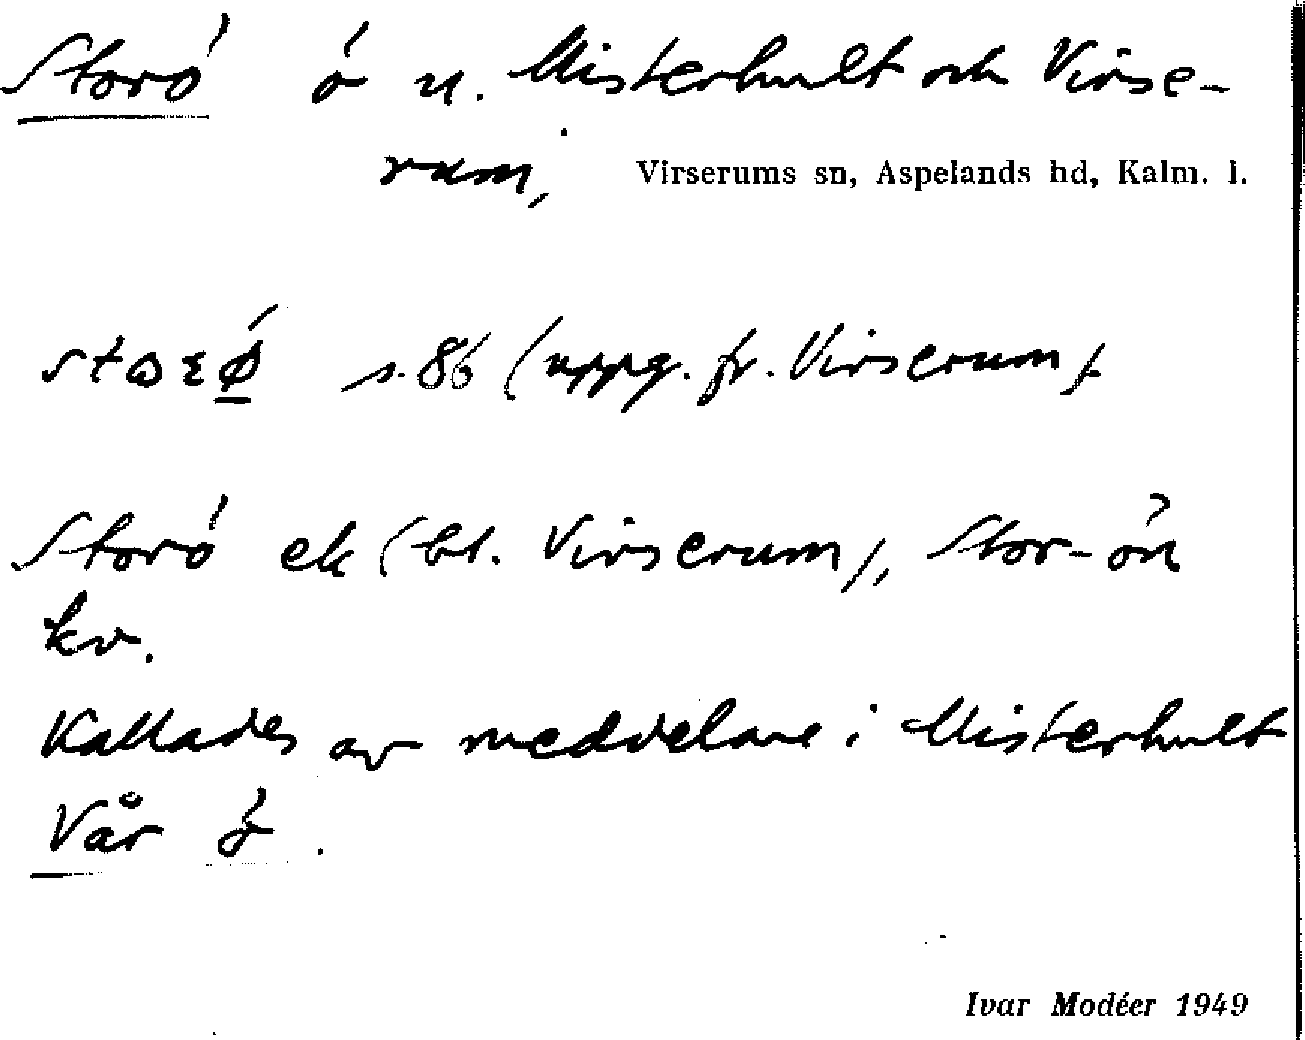 Storö ö u. Misterhult och Virse-
rum, Virserums sn, Aspelands hd, Kalm. l.
s. 86 (uppg. fr. Virserum).
Storö ek (bl. Virserum), Stor-ön
kv.
Kallades av meddelare i Misterhult
Vår ö.
Ivar Modéer 1949